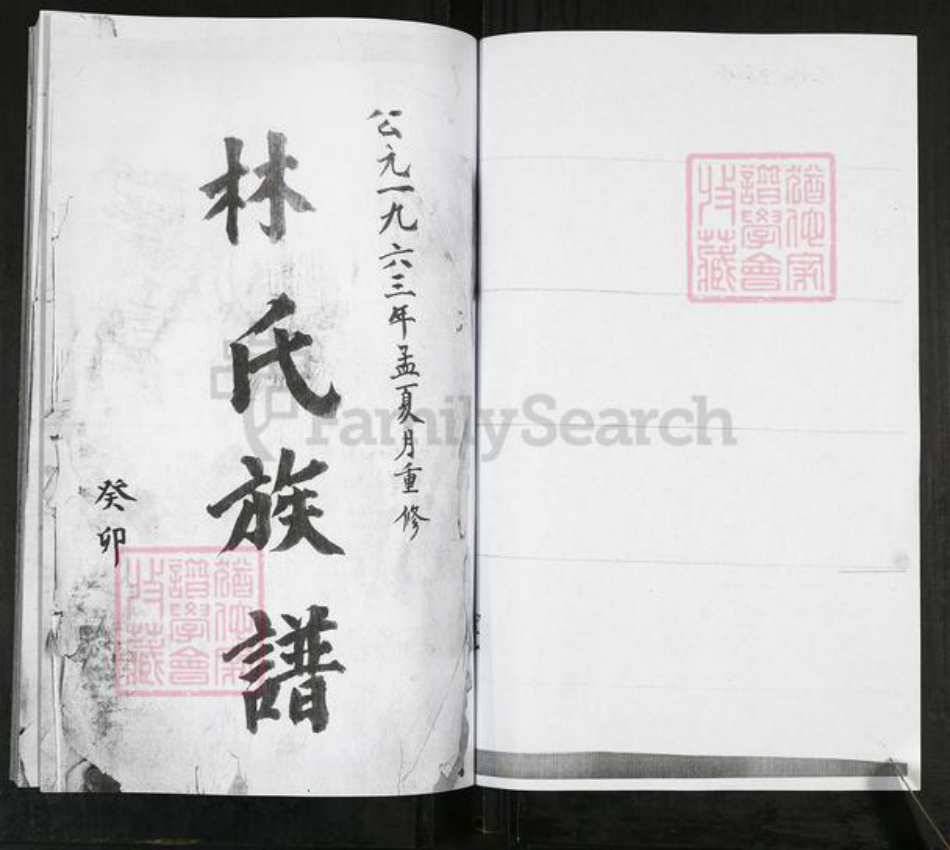 公元一九六三年孟夏月重修
林氏族譜
癸卯
猶他家
譜學會
收藏
猶他家
譜學會
收藏
FamilySearch